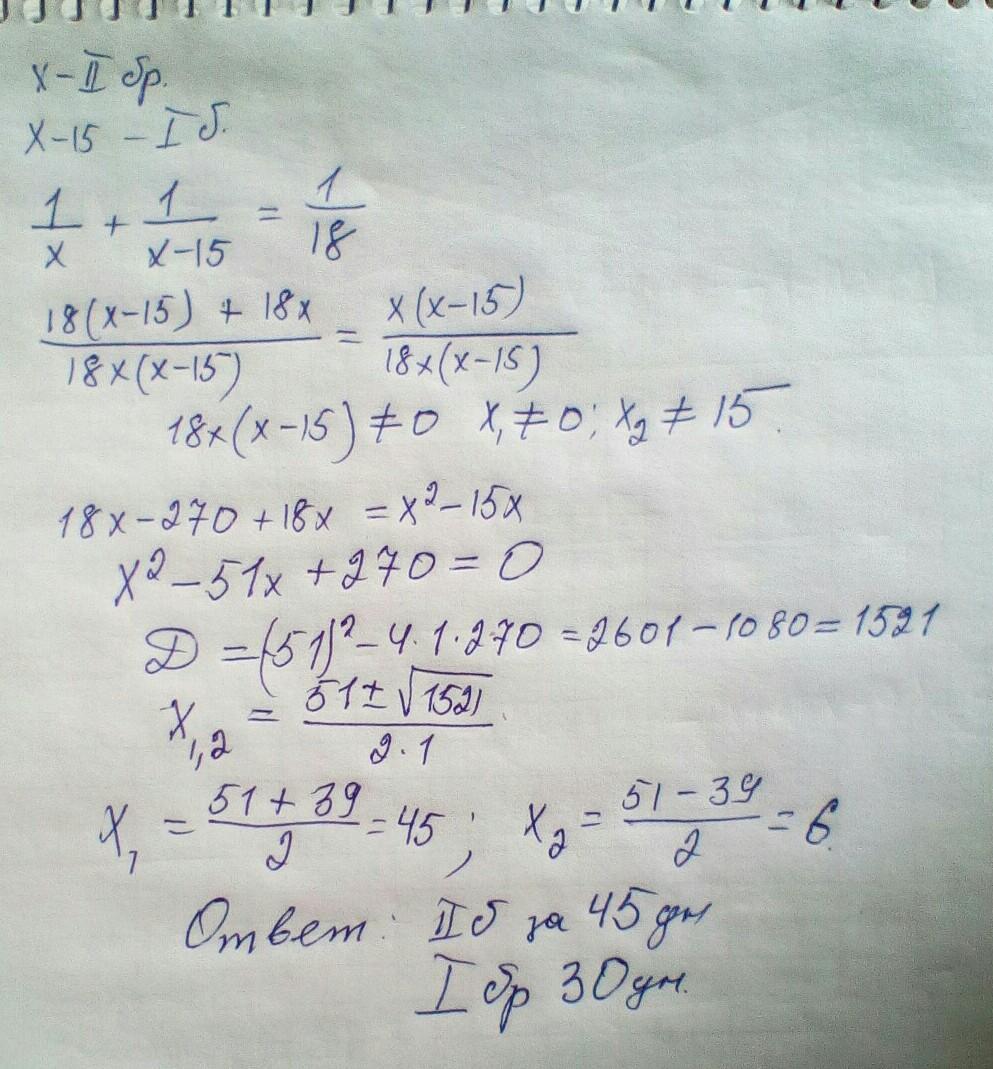 x - II бр.
x-15 - I б.
1/x + 1/(x-15) = 1/18
(18(x-15) + 18x)/(18x(x-15)) = (x(x-15))/(18x(x-15))
18x(x-15) ≠ 0 x₁ ≠ 0; x₂ ≠ 15
18x - 270 + 18x = x² - 15x
x² - 51x + 270 = 0
Д = (51)² - 4·1·270 = 2601 - 1080 = 1521
x₁,₂ = (51 ± √1521)/(2·1)
x₁ = (51 + 39)/2 = 45; x₂ = (51 - 39)/2 = 6
Ответ: II б за 45 дн
I бр 30 дн.